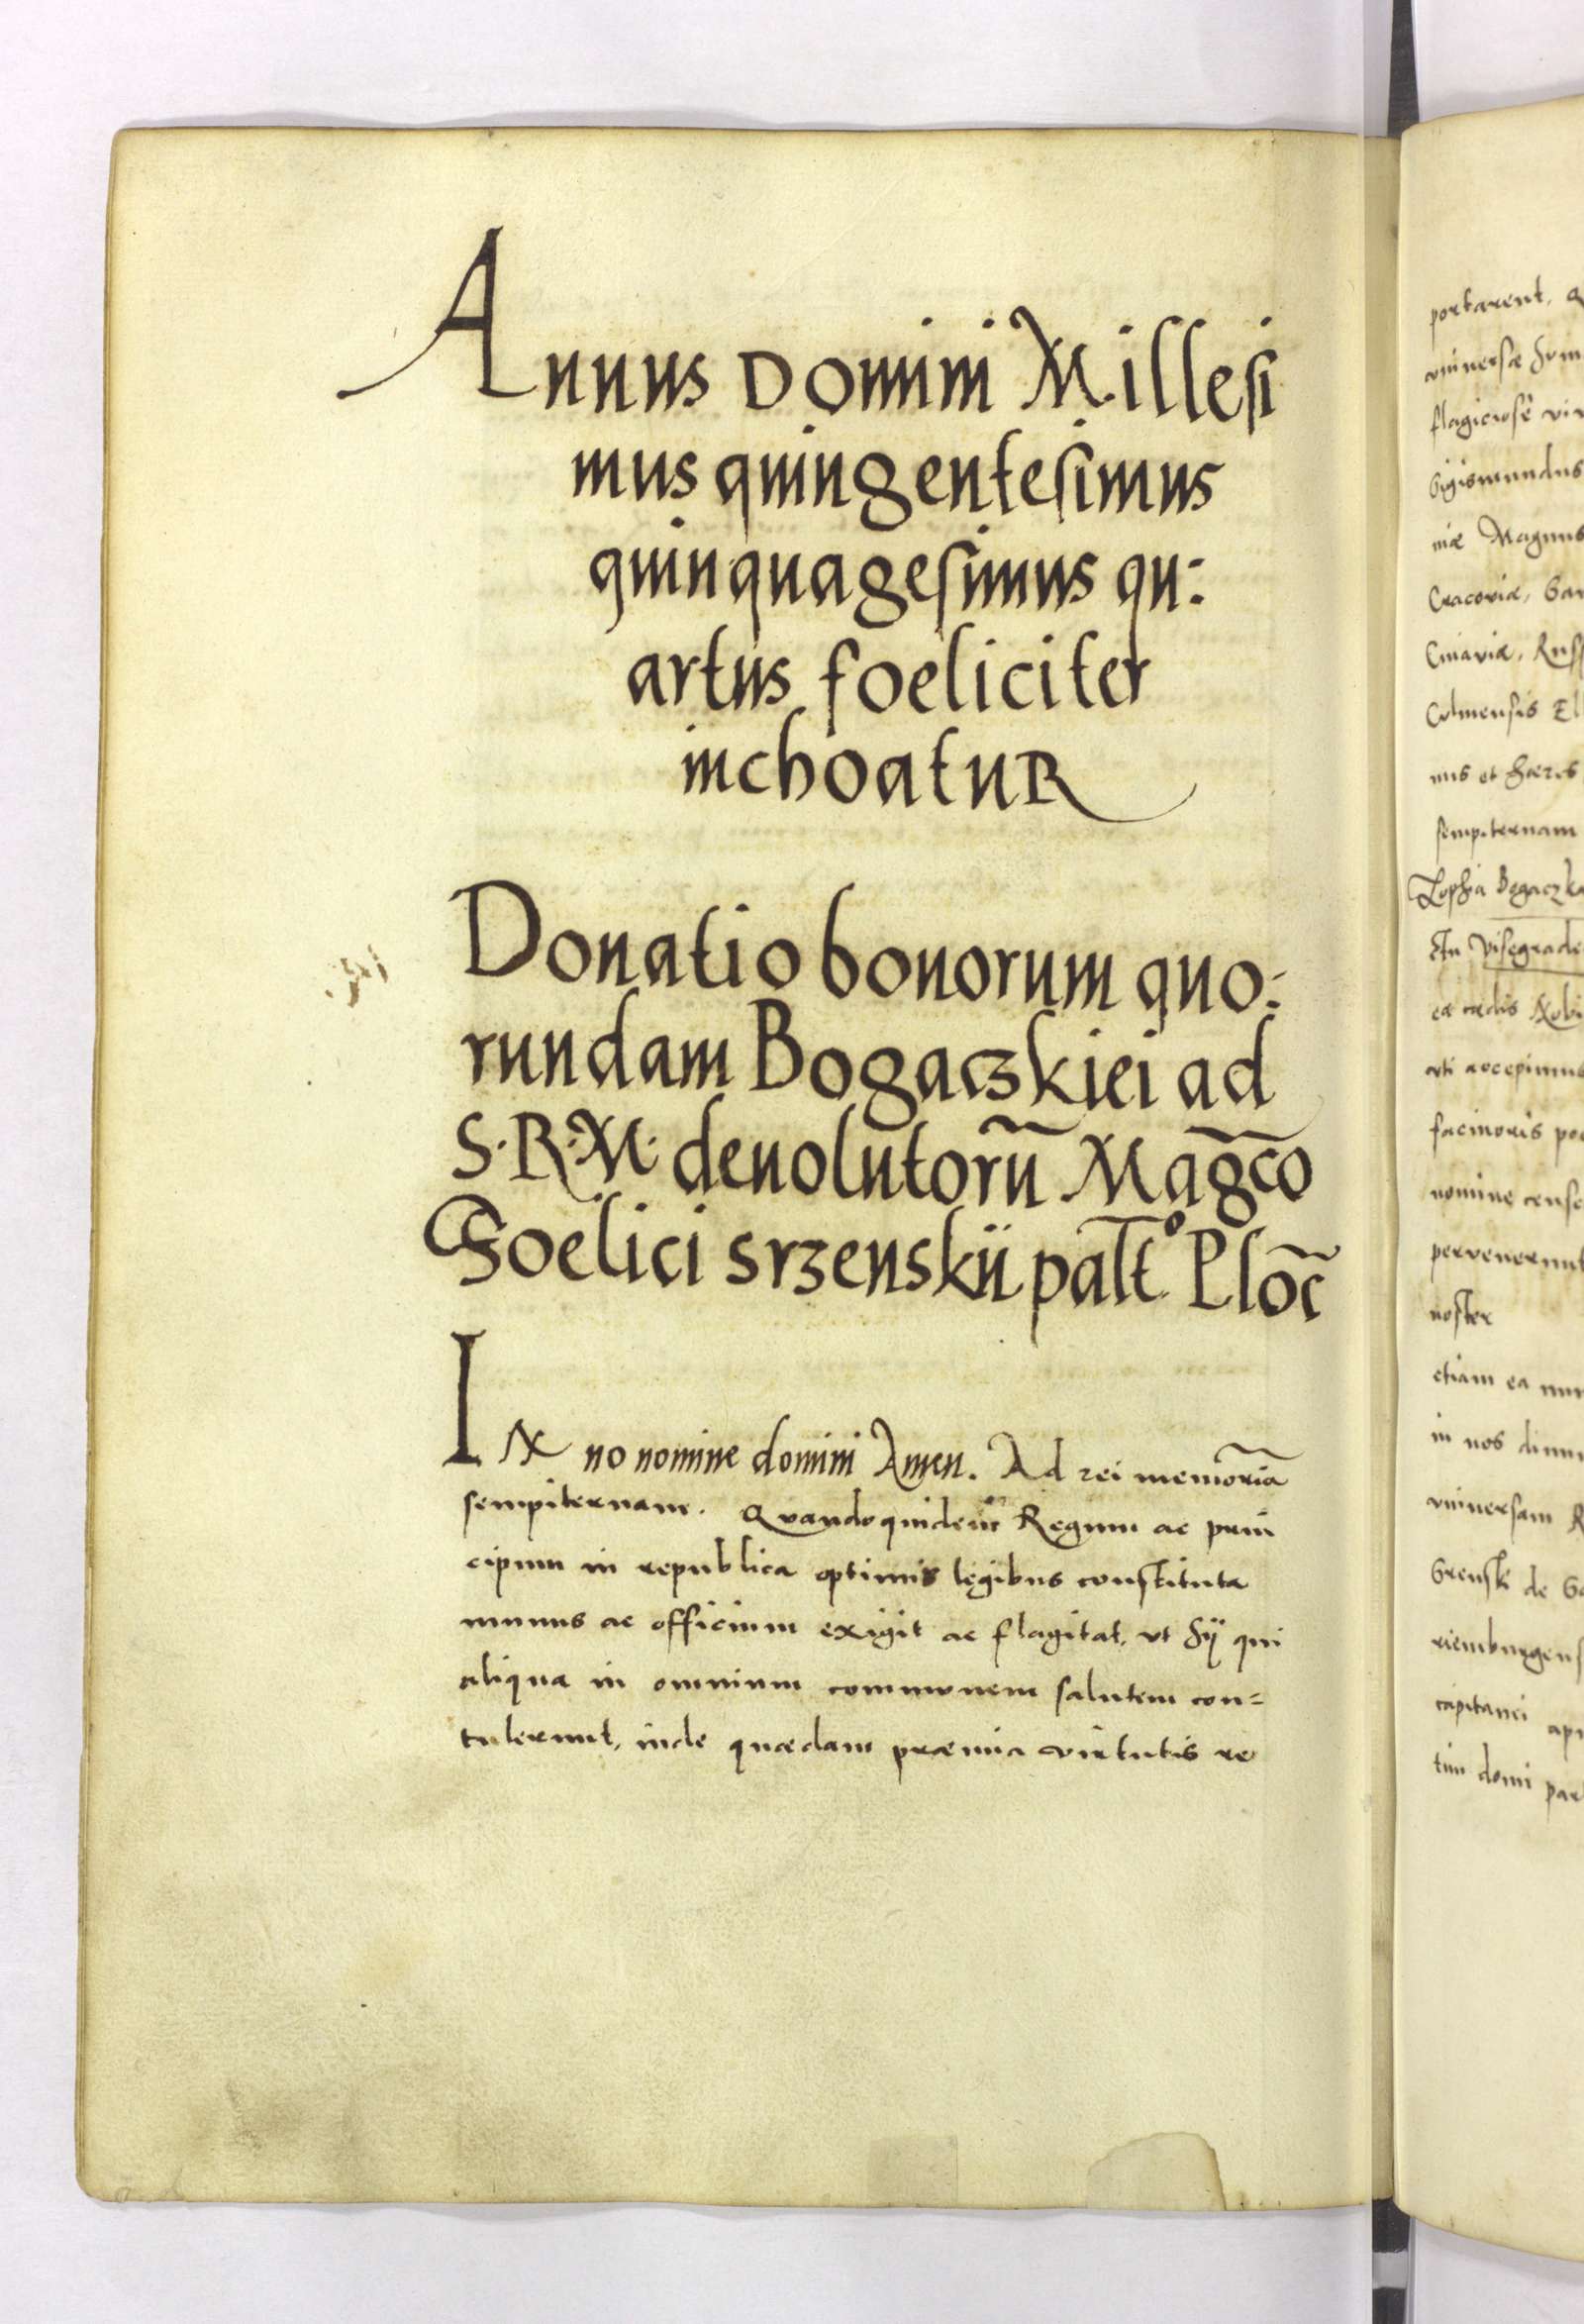 Annus Domini Millesi
mus quingentesimus
quinquagesimus qu:
artus foeliciter
inchoatuR
Donatio bonorum quo:
rundam Bogaczkiei ad
S. R. M. deuolutorũ Mag̃co
Foelici srzenskii pal̃t° Ploc̃
IN no nomine domini Amen. Ad rei memoriã
sempiternam. Quandoquidem Regum ac prin
cipum in republica optimis legibus constituta
munus ac officium exigit ac flagitat, ut hÿ qui
aliqua in omnium communem salutem con=
tulerunt, inde quædam præmia virtutis re
portarent,
universæ
flagiciose
Sigismundus
niæ Magnus
Cracoviæ,
Cuiaviæ, Russ
Culmensis El
nus et hæres
sempiternam
Zophia Bogaczka
In Visegrade
ea cædis Nobi
uti accepimus
facinoris
nomine cense
pervenerunt
noster
etiam ea
in nos
universam R
Srenski de
riemburgens
capitanei
tim domi par